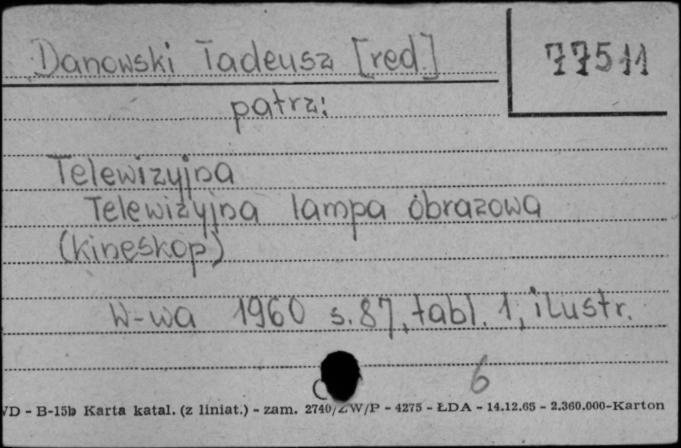 Danowski Tadeusz [red.]
77511
patrz:
Telewizyjna
Telewizyjna lampa obrazowa
(kineskop)
W-wa 1960 s. 87, tabl. 1, ilustr.
6
VD - B-15b Karta katal. (z liniat.) - zam. 2740/ZW/P - 4275 - ŁDA - 14.12.65 - 2.360.000-Karton